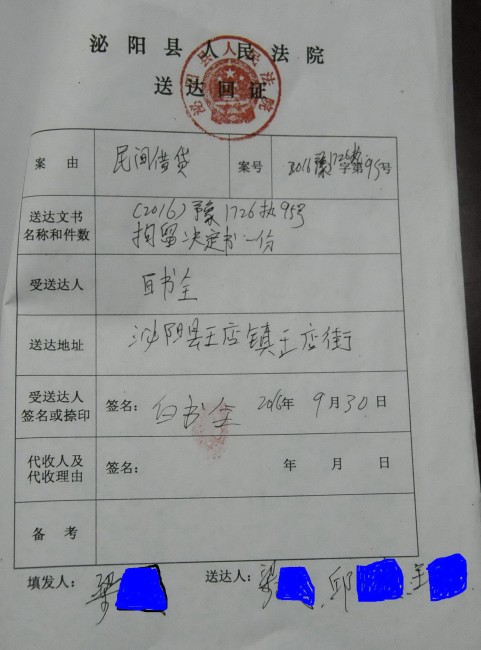 泌阳县人民法院
送达回证
泌阳县人民法院
案由 民间借贷 案号 2016豫1726执字第95号
送达文书名称和件数 (2016)豫1726执95号
拘留决定书一份
受送达人 白书全
送达地址 泌阳县王店镇王店街
受送达人签名或捺印 签名: 白书全 2016年9月30日
代收人及代收理由 签名: 年 月 日
备考
填发人: 梁 送达人: 梁 邱 王